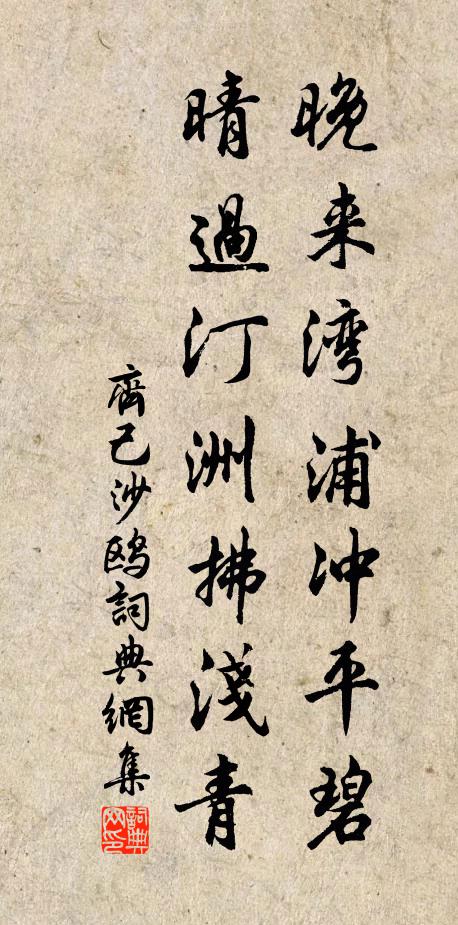 晚来湾浦冲平碧
晴過汀洲拂淺青
齊己沙鸥詞典網集
詞典网印